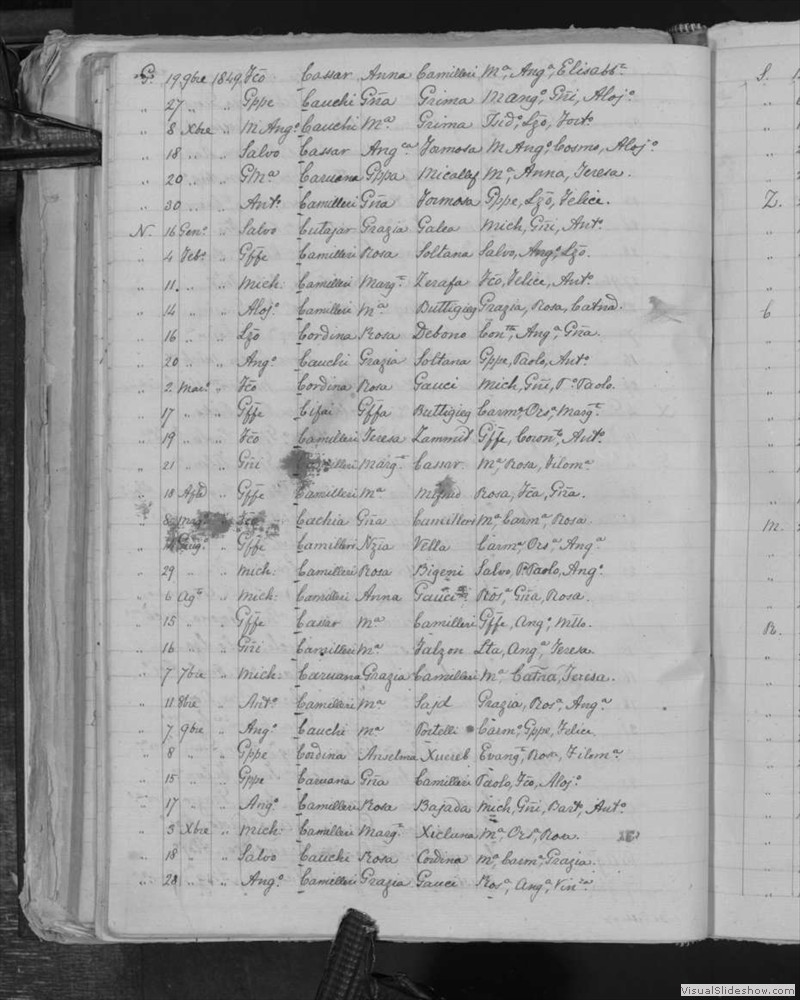 G. 19 9bre 1849. Fc̄o Cassar Anna Camilleri Mª, Angª, Elisabbª
" 27 " " Gppe Cauchi Gn̄a Grima M Angº, Gn̄i, Alojº
" 8 Xbre " M Angº Cauchi Mª Grima Isidº, Lz̄o, Fortº
" 18 " " Salvo Cassar Angca Formosa M Angº, Cosmo, Alojº
" 20 " " GMª Caruana Gppa Micallef Mª, Anna, Teresa.
" 30 " " Antº Camilleri Gn̄a Formosa Gppe, Lz̄o, Felice.
N. 16 Genº " Salvo Cutajar Grazia Galea Mich, Gn̄i, Antº
" 4 Febº " Gffe Camilleri Rosa Soltana Salvo, Angº, Lz̄o.
" 11 " " Mich: Camilleri Margta Zerafa Fc̄o, Felice, Antº
" 14 " " Alojº Camilleri Mª Buttigieg Grazia, Rosa, Catn̄a.
" 16 " " Lz̄o Cordina Rosa Debono Angª, Gn̄a.
" 20 " " Angº Cauchi Grazia Soltana Gppe, Paolo, Antº
" 2 Marº " Fc̄o Cordina Rosa Gauci Mich, Gn̄i, Pº Paolo.
" 17 " " Gffe Cifai Gffa Buttigieg Carmª, Orsª, Margta
" 19 " " Fc̄o Camilleri Teresa Zammit Gffe, Antº
" 21 " " Gn̄i Camilleri Margta Cassar Mª, Rosa, Filomª
" 18 " Gffe Camilleri Mª Mifsud Rosa, Fc̄a, Gn̄a.
" 8 Magº " Fc̄o Cachia Gn̄a Camilleri Mª, Carmª, Rosa
" " Gffe Camilleri Nz̄ia Vella Carmª, Orsª, Angª
" 29 " " Mich: Camilleri Rosa Bigeni Salvo, Pº Paolo, Angº
" 6 Agº " Mich: Camilleri Anna Gauci Rosª, Gn̄a, Rosa.
" 15 " " Gffe Cassar Mª Camilleri Gffe, Angº, Mtto.
" 16 " " Gn̄i Camilleri Mª Falzon Angª, Teresa
" 7 7bre " Mich: Caruana Grazia Camilleri Mª, Catn̄a, Teresa.
" 11 8bre " Antº Camilleri Mª Sajd Grazia, Rosª, Angª
" 7 9bre " Angº Cauchi Mª Portelli Carmº, Gppe, Felice
" 8 " " Gppe Cordina Anselma Xuereb Evangta, Rosa, Filomª
" 15 " " Gppe Caruana Gn̄a Camilleri Paolo, Fc̄o, Alojº
" 17 " " Angº Camilleri Rosa Bajada Mich, Gn̄i, Bartº, Antº
" 3 Xbre " Mich: Camilleri Margta Xicluna Mª, Orsª, Rosa
" 18 " " Salvo Cauchi Rosa Cordina Mª, Carmª, Grazia.
" 28 " " Angº Camilleri Grazia Gauci Rosª, Angª, Vinza
S.
Z.
C
M.
R.
VisualSlideshow.com